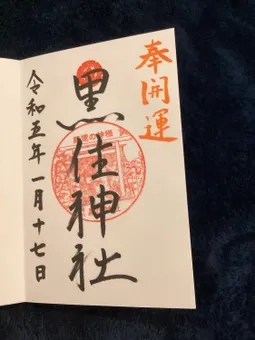 奉開運
黒住神社
令和五年一月十七日